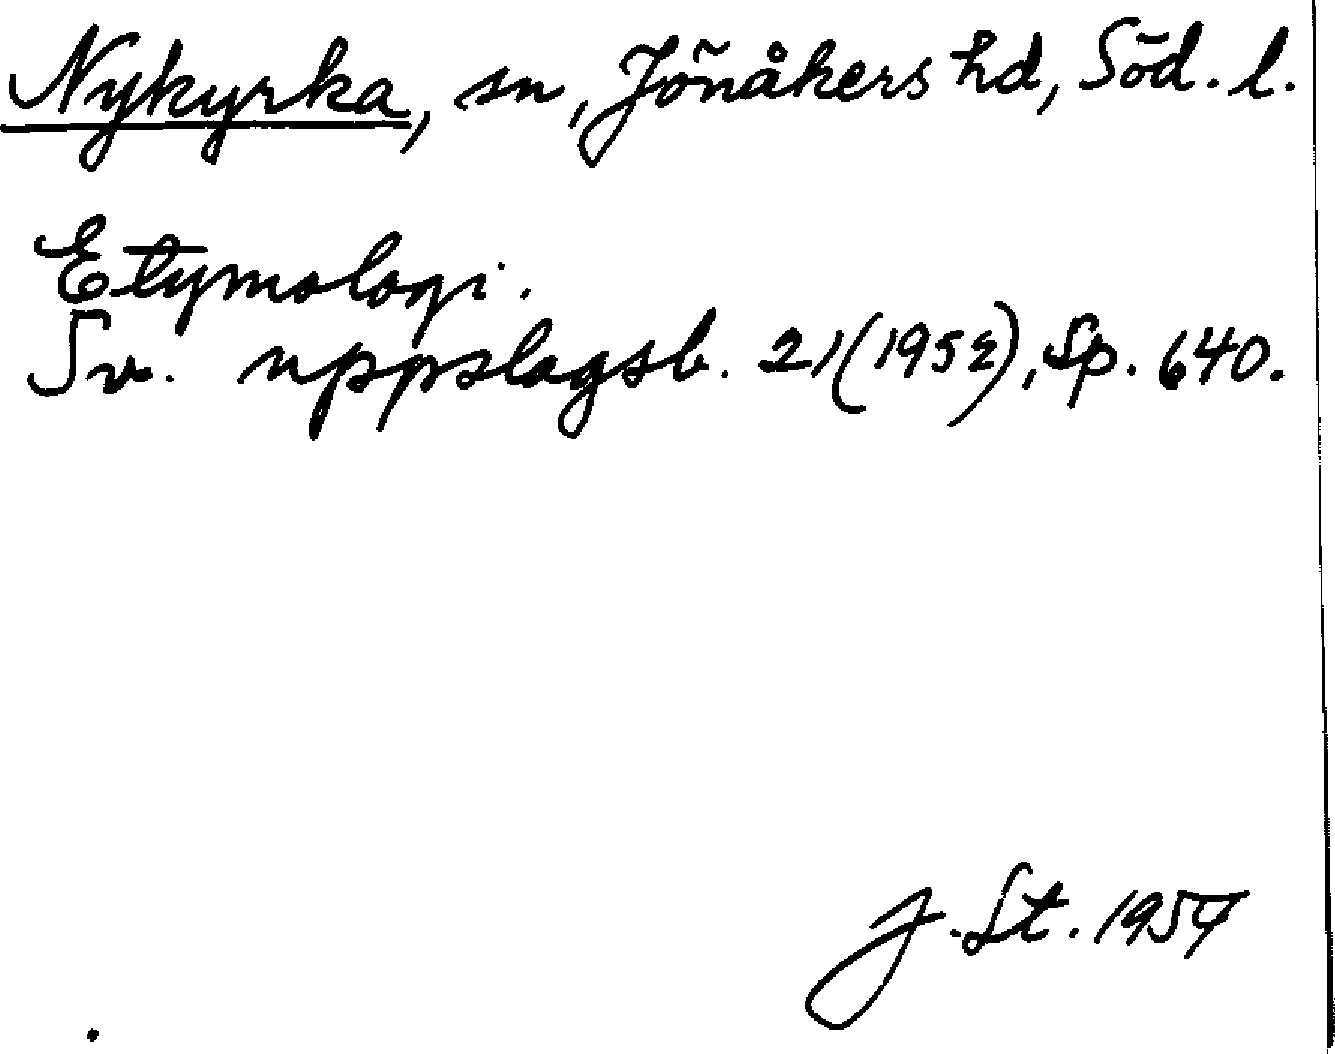 Nykyrka, sn, Jönåkers hd, Söd. l.
Etymologi.
Sv. uppslagsb. 21 (1952), Sp. 640.
J. St. 1957